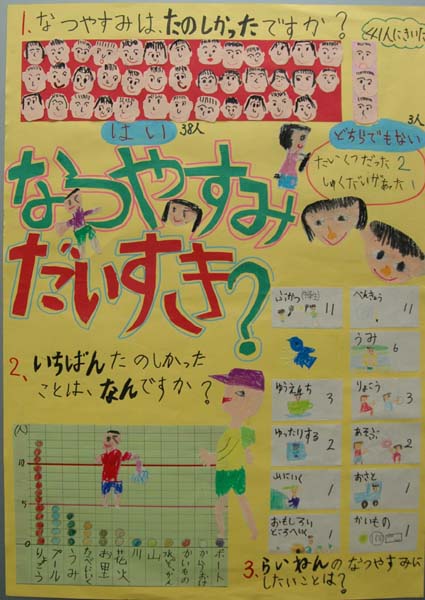 1、なつやすみは、たのしかったですか?
41人にきいた
はい
38人
3人
どちらでもない
たいくつだった 2
しゅくだいがあった 1
なつやすみ
だいすき?
2、いちばんたのしかった
ことは、なんですか?
(人)
10
5
0
りょこう
プール
うみ
たべにいく
お里
花火
川
山
水ぞくかん
かいもの
からおけ
ボート
ぶかつ 11
べんきょう 11
うみ 6
ゆうえんち 3
りょこう 3
ゆったりする 2
あそぶ 2
山にいく 1
おさと 1
おもしろい
ところへいく 1
かいもの 1
3、らいねんのなつやすみに
したいことは?